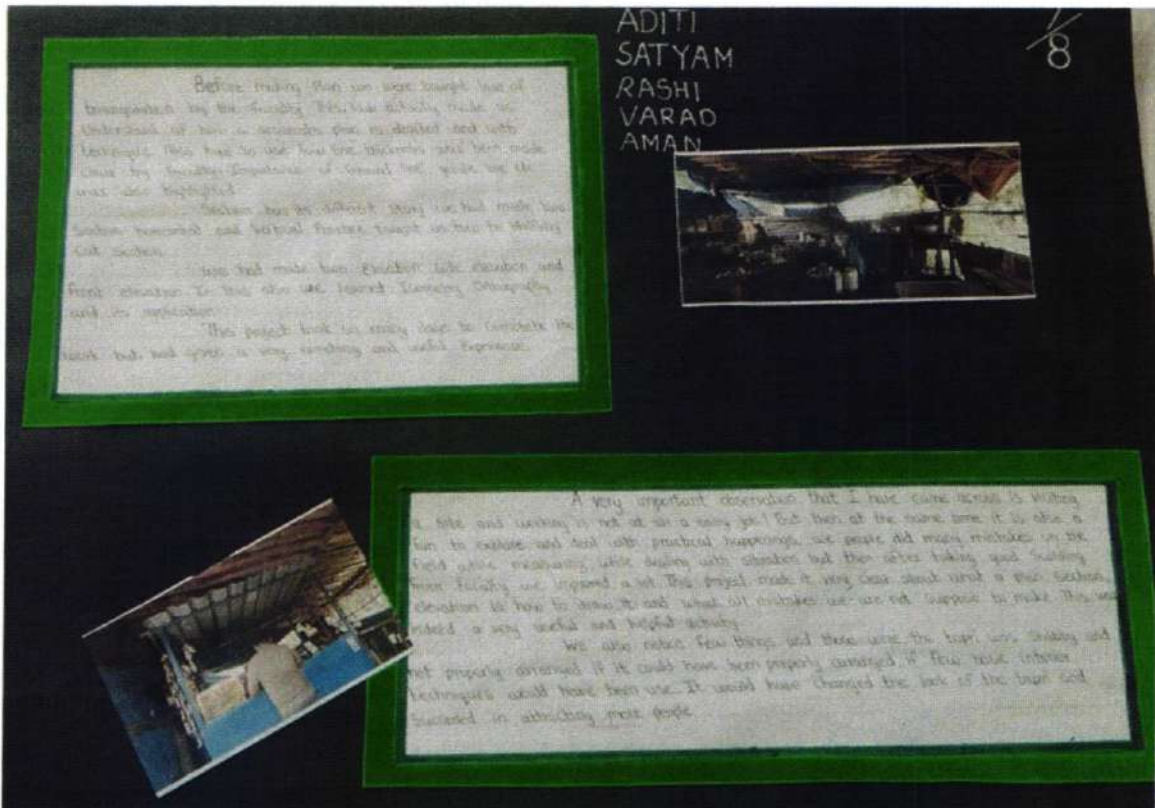 Before making Plan we were taught use of
by the faculty. This activity made us
Understand of how a plan is drafted and with
technique. Also how to use line thickness and been made
clear by faculty. Importance of Ground line, grade line etc
was also highlighted.
Section has its different story we had made two
Section horizontal and Vertical Practice taught us how to
Cut section.
had made two Elevation side elevation and
Front elevation In this also we learned Isometry Orthography
and its application
This project took us many days to Complete the
work but had given a very and useful Experience.
ADITI
SATYAM
RASHI
VARAD
AMAN
1/8
A very important observation that I have came across is visiting
a site and working is not at all a easy job! But then at the same time it is also a
fun to explore and deal with practical happenings, we people did many mistakes on the
field while measuring, while dealing with situation but then after taking good
from faculty we improved a lot. This project made it very clear about what a plan section,
elevation is how to draw it and what all mistakes we are not suppose to make This was
indeed a very useful and helpful activity.
We also notice few things and those were the tapri was shabby and
not properly arranged if it could have been properly arranged if few interior
techniques would have been use. It would have changed the look of the tapri and
succeded in attracting more people